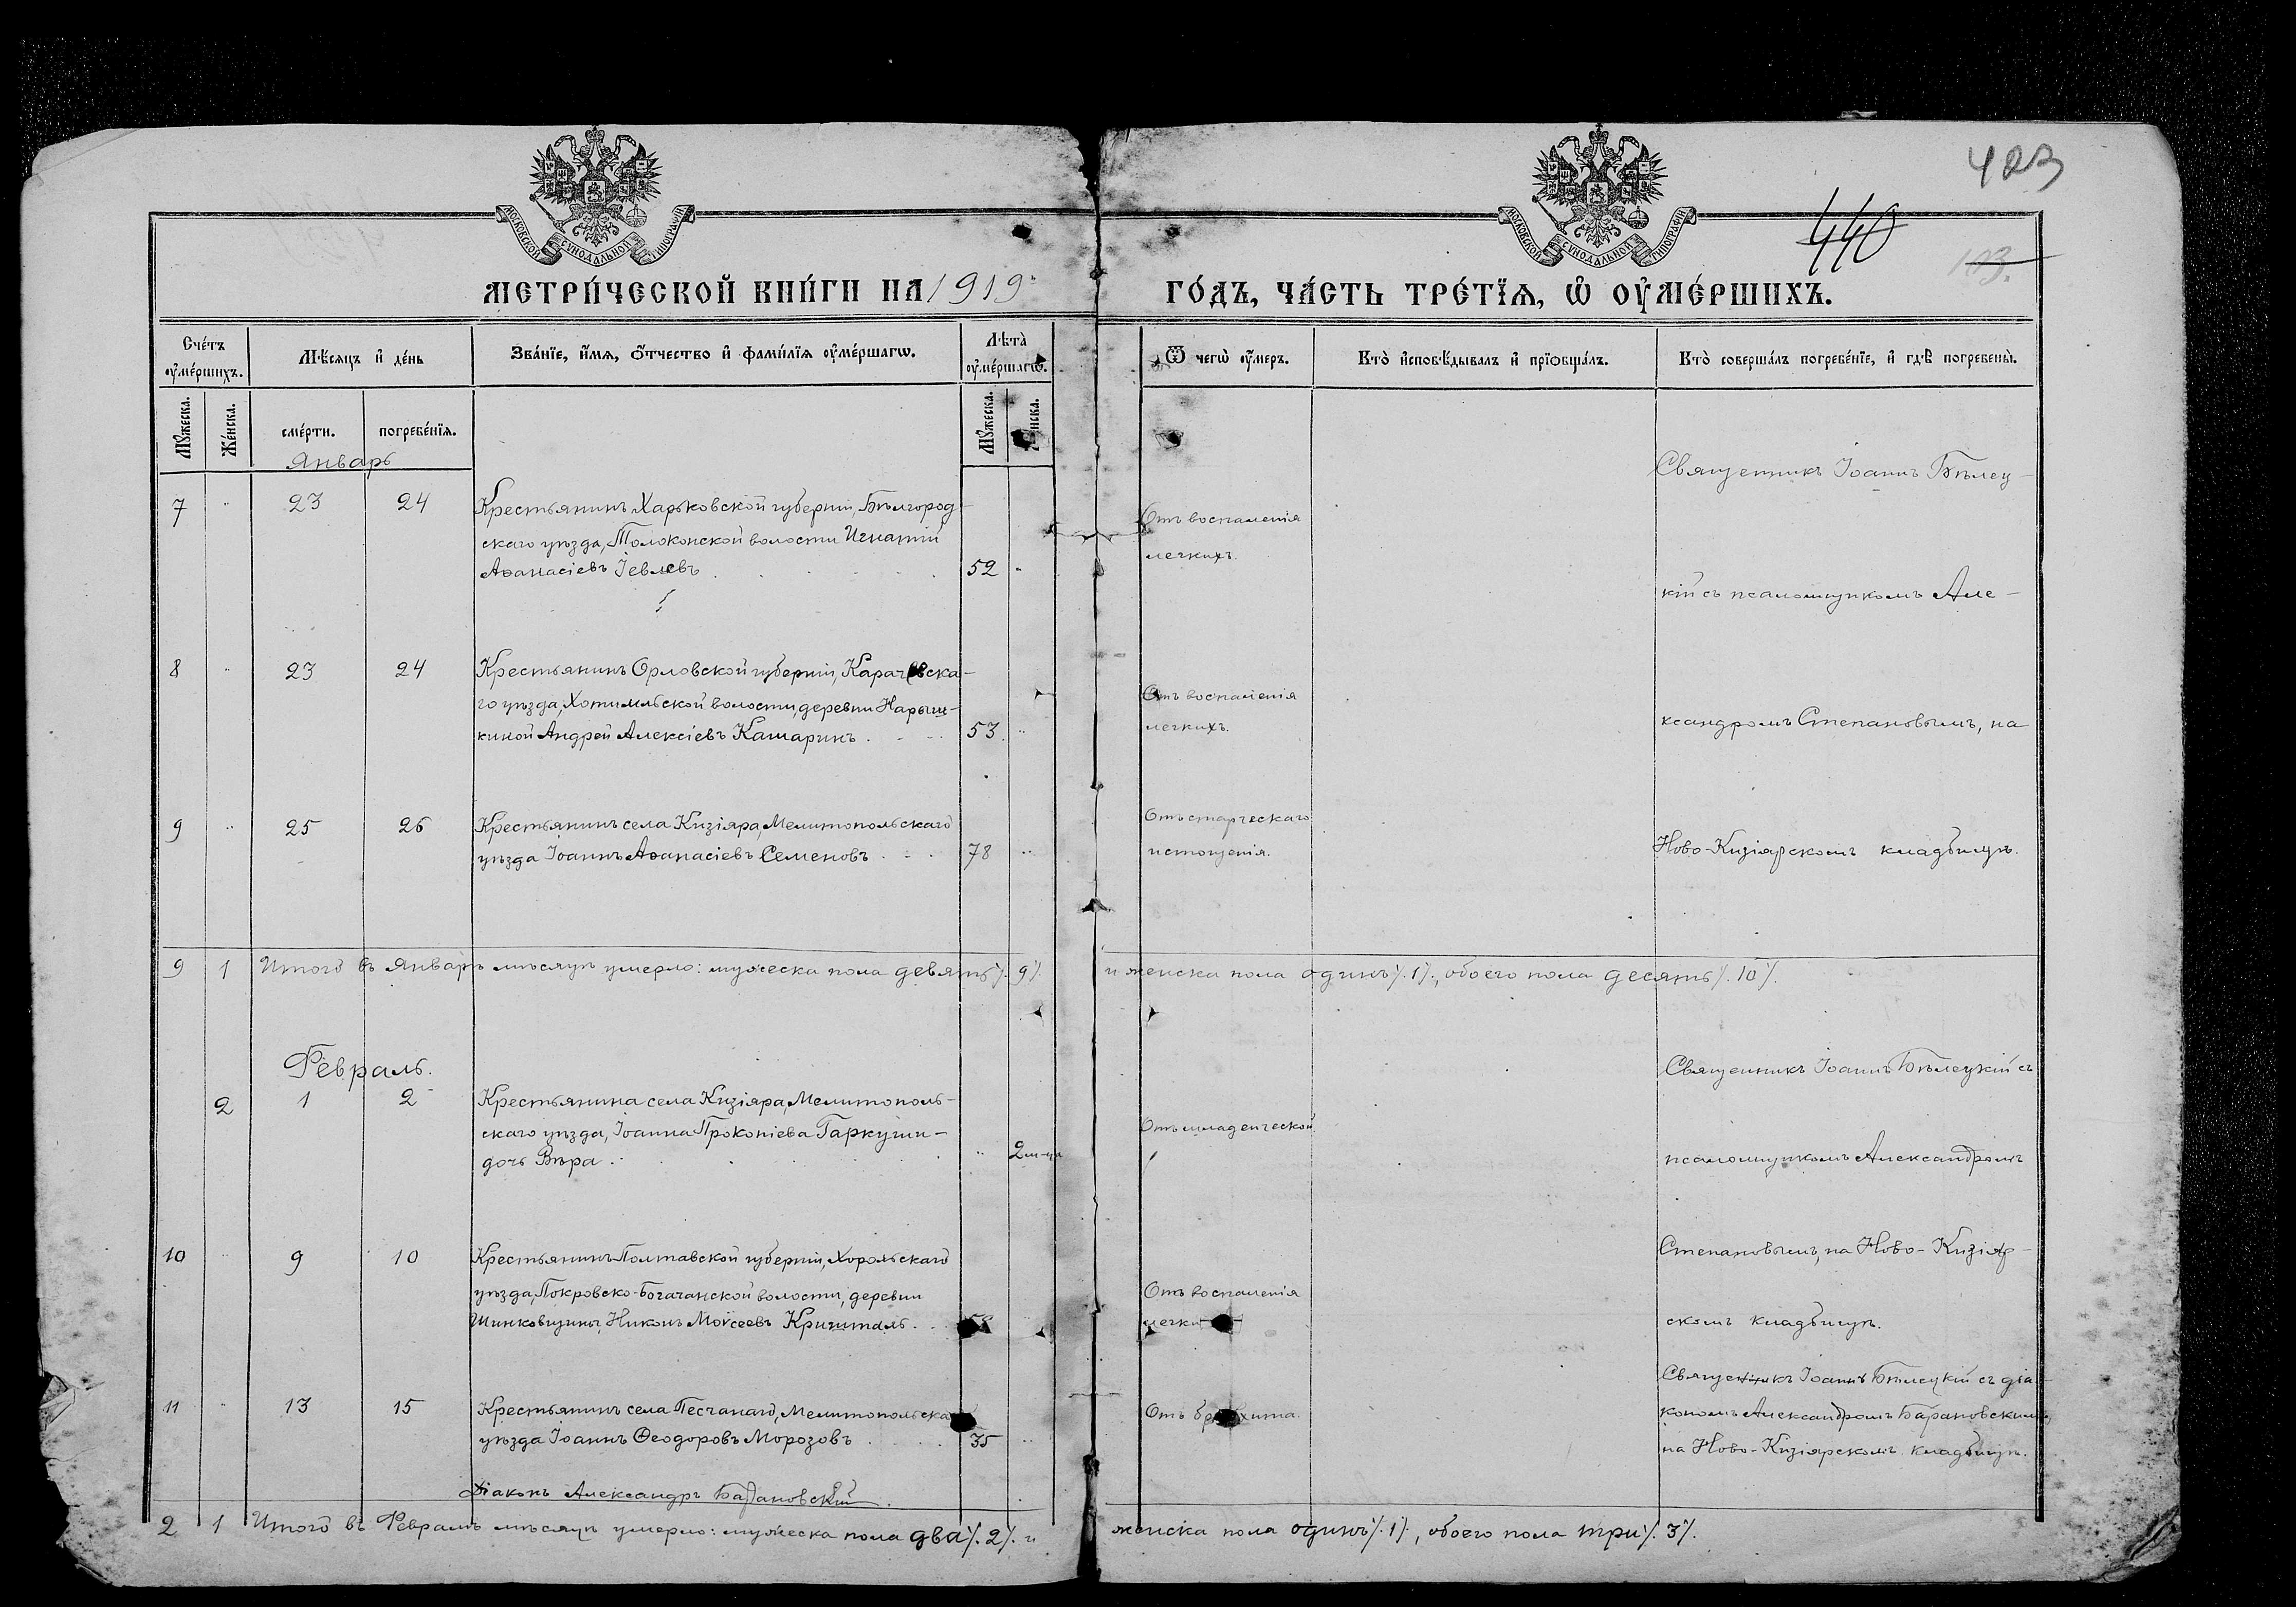 МОСКОВСКОЙ СѴНОДАЛЬНОЙ ТИПОГРАФІИ
МОСКОВСКОЙ СѴНОДАЛЬНОЙ ТИПОГРАФІИ
423
440
103.
МЕТРИ́ЧЕСКОЙ КНИ́ГИ НА 1919 ГО́ДЪ, ЧА́СТЬ ТРЕ́ТІѦ, Ѡ ОУМЕ́РШИХЪ.
Сче́тъ оуме́ршихъ.
Мѣ́сяцъ и де́нь
Зва́нїе, и́мя, ѻ́тчество и фами́лїя оуме́ршагѡ.
Лѣта̀ оуме́ршагѡ.
Ѿ чегѡ̀ оу́меръ.
Кто̀ исповѣ́дывалъ и прїѻбща́лъ.
Кто̀ соверша́лъ погребе́нїе, и гдѣ̀ погребены̀.
Мꙋ́жеска.
Же́нска.
сме́рти.
погребе́нїя.
Мꙋ́жеска.
Январь
7 " 23 24 Крестьянинъ Харьковской губерніи, Бѣлгород-
скаго уѣзда, Толоконской волости Игнатій
Аѳанасіевъ Іевлевъ 52 "
Отъ воспаленія
легкихъ.
Священникъ Іоаннъ Бѣлец-
кій съ псаломщикомъ Але-
8 " 23 24 Крестьянинъ Орловской губерніи, Карачевска-
го уѣзда, Хотимльской волости, деревни Нарыш-
киной Андрей Алексіевъ Кашаринъ 53. "
Отъ воспаленія
легкихъ.
ксандромъ Степановымъ, на
9 " 25 26 Крестьянинъ села Кизіяра, Мелитопольскаго
уѣзда Іоаннъ Аѳанасіевъ Семеновъ 78 "
Отъ старческаго
истощенія.
Ново-Кизіярскомъ кладбищѣ.
9 1 Итого въ Январѣ мѣсяцѣ умерло: мужеска пола девять /.9/. и женска пола одинъ /.1/., обоего пола десять /.10/.
Февраль.
2 1 2 Крестьянина села Кизіяра, Мелитополь-
скаго уѣзда, Іоанна Прокопіева Гаркуши -
дочь Вѣра. " 2 м-ца
Отъ младенческой
Священникъ Іоаннъ Бѣлецкій съ
псаломщикомъ Александромъ
10 " 9 10 Крестьянинъ Полтавской губерніи, Хорольскаго
уѣзда, Покровско-Богачанской волости, деревни
Шинковщины, Никонъ Моѵсеевъ Кришталь.
Отъ воспаленія
Степановымъ, на Ново-Кизіяр-
скомъ кладбищѣ.
11 " 13 15 Крестьянинъ села Песчанаго, Мелитопольскаго
уѣзда Іоаннъ Ѳеодоровъ Морозовъ 35 "
Отъ бронхита.
Священникъ Іоаннъ Бѣлецкій съ діа-
кономъ Александромъ Барановскимъ,
на Ново-Кизіярскомъ кладбищѣ.
Діаконъ Александръ Барановскій.
2 1 Итого въ Февралѣ мѣсяцѣ умерло: мужеска пола два /.2/. и женска пола одинъ /.1/., обоего пола три /.3/.